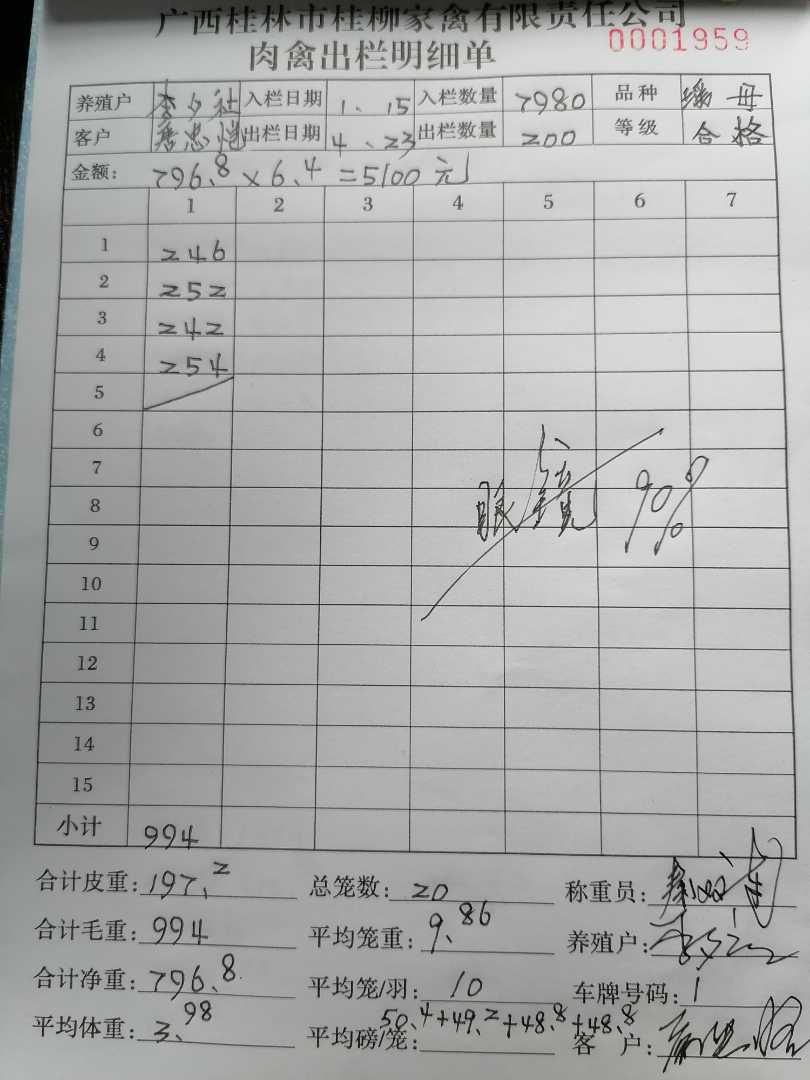 广西桂林市桂柳家禽有限责任公司
肉禽出栏明细单 0001959
养殖户 李 社 入栏日期 1、15 入栏数量 7980 品种 母
客户 唐忠 出栏日期 4、23 出栏数量 200 等级 合格
金额: 796.8×6.4=5100元
1 2 3 4 5 6 7
1 246
2 252
3 242
4 254
5
6
7
8 眼镜 90%
9
10
11
12
13
14
15
小计 994
合计皮重: 197.2 总笼数: 20 称重员: 秦
合计毛重: 994 平均笼重: 9.86 养殖户: 李
合计净重: 796.8 平均笼/羽: 10 车牌号码: 1
平均体重: 3.98 平均磅/笼: 50.4+49.2+48.8+48.8 客户: